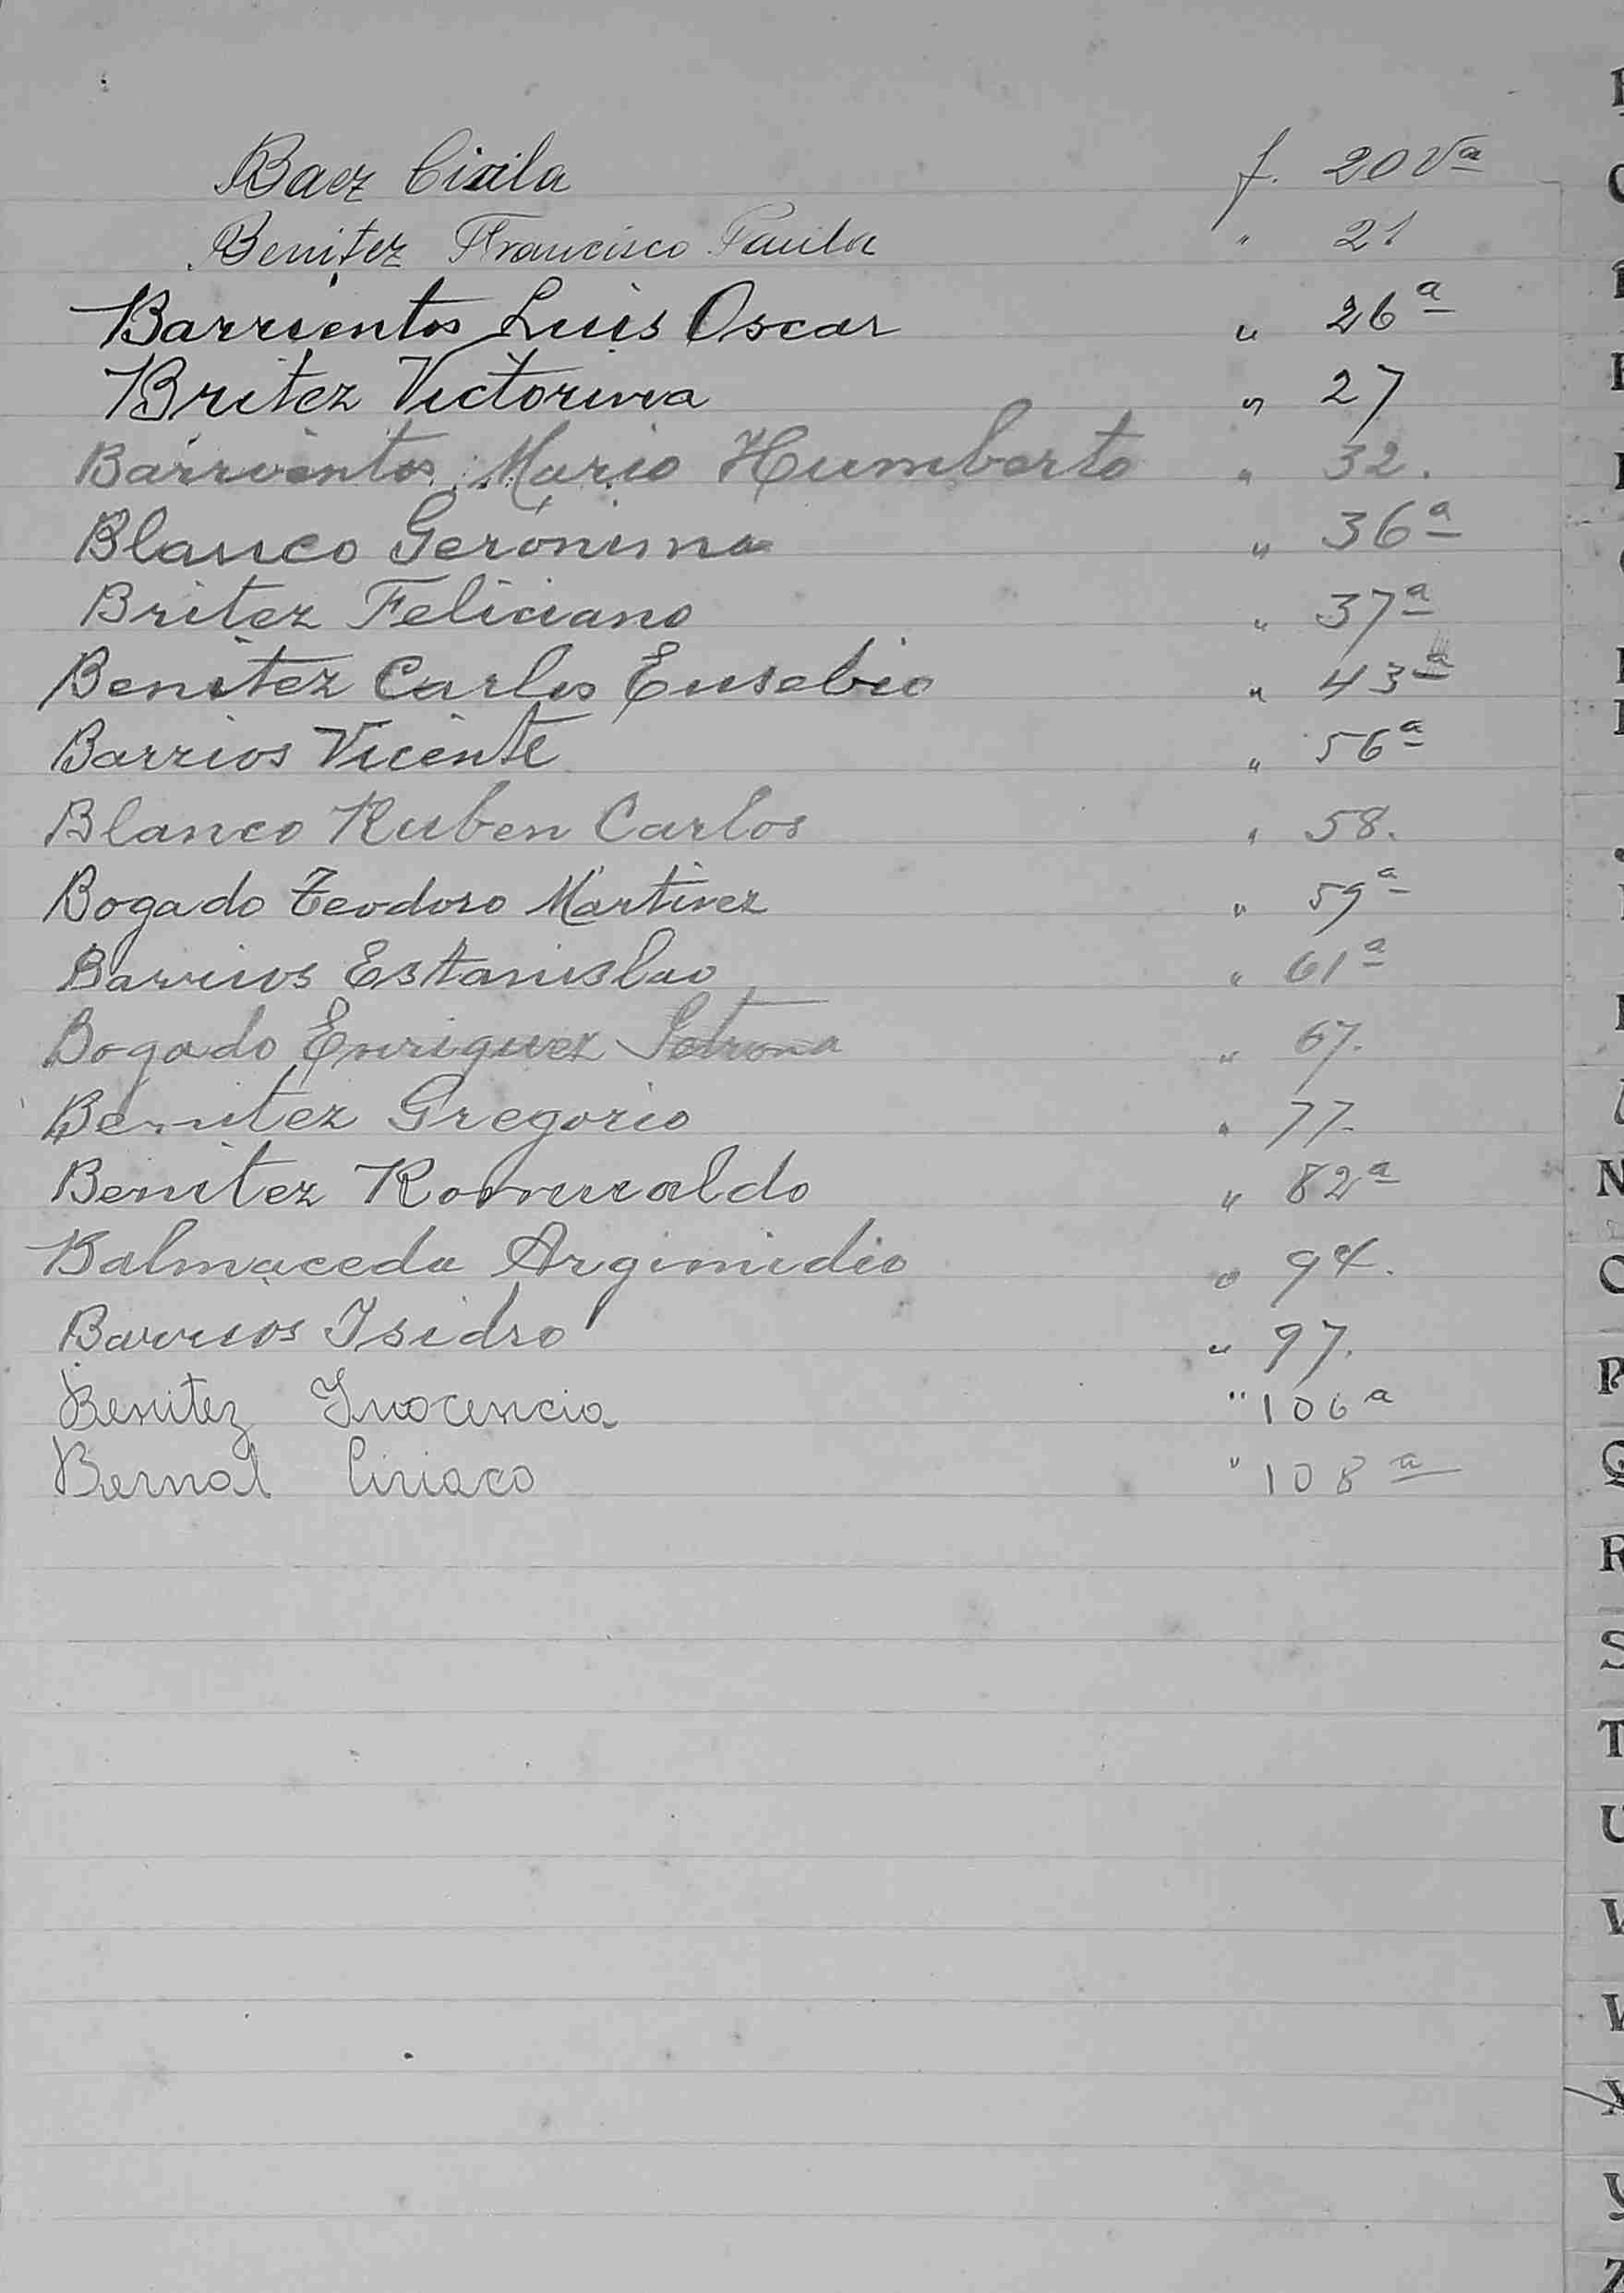 Baez Cirila f. 20 Vª
Benitez Francisco Paula " 21
Barrientos Luis Oscar " 26ª
Britez Victorina " 27
Barrientos Mario Humberto " 32.
Blanco Gerónima " 36ª
Britez Feliciano " 37ª
Benitez Carlos Eusebio " 43ª
Barrios Vicente " 56ª
Blanco Ruben Carlos " 58.
Bogado Teodoro Martinez " 59ª
Barrios Estanislao " 61ª
Bogado Enriquez " 67.
Benitez Gregorio " 77.
Benitez Romualdo " 82ª
Balmaceda Argimidio " 94.
Barrios Isidro " 97.
Benitez Inocencia " 106ª
Bernal Ciriaco " 108ª
N
O
P
Q
R
S
T
U
V
X
Y
Z